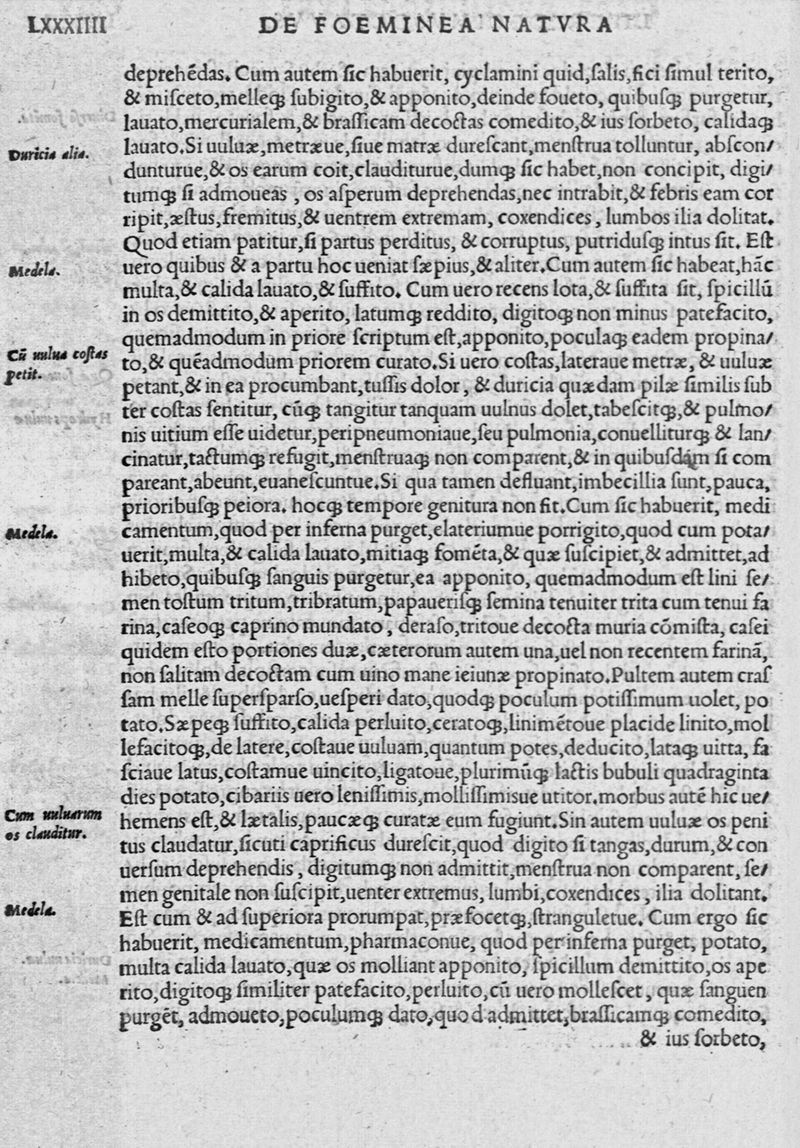 LXXXIIII DE FOEMINEA NATVRA
deprehēdas. Cum autem ſic habuerit, cyclamini quid,ſalis,fici ſimul terito,
& miſceto,melleqꝫ ſubigito,& apponito,deinde foueto, quibuſqꝫ purgetur,
lauato,mercurialem,& braſſicam decoctas comedito,& ius ſorbeto, calidaqꝫ
Duricia alia.
lauato.Si uuluæ,metræue,ſiue matræ dureſcant,menſtrua tolluntur, abſcon/
dunturue,& os earum coit,clauditurue,dumqꝫ ſic habet,non concipit, digi/
tumqꝫ ſi admoueas , os aſperum deprehendas,nec intrabit,& febris eam cor
ripit,æſtus,fremitus,& uentrem extremam, coxendices , lumbos ilia dolitat.
Quod etiam patitur,ſi partus perditus, & corruptus, putriduſqꝫ intus ſit. Eſt
Medela.
uero quibus & a partu hoc ueniat ſæpius,& aliter.Cum autem ſic habeat,hāc
multa,& calida lauato,& ſuffito. Cum uero recens lota,& ſuffita ſit, ſpicillū
in os demittito,& aperito, latumqꝫ reddito, digitoqꝫ non minus patefacito,
quemadmodum in priore ſcriptum eſt,apponito,poculaqꝫ eadem propina/
Cū uulua coſtas
petit.
to,& quēadmodum priorem curato.Si uero coſtas,lateraue metræ, & uuluæ
petant,& in ea procumbant,tuſſis dolor , & duricia quædam pilæ ſimilis ſub
ter coſtas ſentitur, cūqꝫ tangitur tanquam uulnus dolet,tabeſcitqꝫ,& pulmo/
nis uitium eſſe uidetur,peripneumoniaue,ſeu pulmonia,conuelliturqꝫ & lan/
cinatur,tactumqꝫ refugit,menſtruaqꝫ non comparent,& in quibuſdam ſi com
pareant,abeunt,euaneſcuntue.Si qua tamen defluant,imbecillia ſunt,pauca,
prioribuſqꝫ peiora. hocqꝫ tempore genitura non fit.Cum ſic habuerit, medi
Medela.
camentum,quod per inferna purget,elateriumue porrigito,quod cum pota/
uerit,multa,& calida lauato,mitiaqꝫ fomēta,& quæ ſuſcipiet,& admittet,ad
hibeto,quibuſqꝫ ſanguis purgetur,ea apponito, quemadmodum eſt lini ſe/
men toſtum tritum,tribratum,papaueriſqꝫ ſemina tenuiter trita cum tenui fa
rina,caſeoqꝫ caprino mundato , deraſo,tritoue decocta muria cōmiſta, caſei
quidem eſto portiones duæ,cæterorum autem una,uel non recentem farinā,
non ſalitam decoctam cum uino mane ieiunæ propinato.Pultem autem craſ
ſam melle ſuperſparſo,ueſperi dato,quodqꝫ poculum potiſſimum uolet, po
tato.Sæpeqꝫ ſuffito,calida perluito,ceratoqꝫ,linimētoue placide linito,mol
lefacitoqꝫ,de latere,coſtaue uuluam,quantum potes,deducito,lataqꝫ uitta, fa
ſciaue latus,coſtamue uincito,ligatoue,plurimūqꝫ lactis bubuli quadraginta
dies potato,cibariis uero leniſſimis,molliſſimisue utitor.morbus autē hic ue/
Cum uuluarum
os clauditur.
hemens eſt,& lætalis,paucæqꝫ curatæ eum fugiunt.Sin autem uuluæ os peni
tus claudatur,ſicuti caprificus dureſcit,quod digito ſi tangas,durum,& con
uerſum deprehendis , digitumqꝫ non admittit,menſtrua non comparent, ſe/
men genitale non ſuſcipit,uenter extremus, lumbi,coxendices , ilia dolitant.
Medela.
Eſt cum & ad ſuperiora prorumpat,præfocetqꝫ,ſtranguletue. Cum ergo ſic
habuerit, medicamentum,pharmaconue, quod per inferna purget, potato,
multa calida lauato,quæ os molliant apponito, ſpicillum demittito,os ape
rito,digitoqꝫ ſimiliter patefacito,perluito,cū uero molleſcet , quæ ſanguen
purgēt, admoueto,poculumqꝫ dato,quod admittet,braſſicamqꝫ comedito,
& ius ſorbeto,